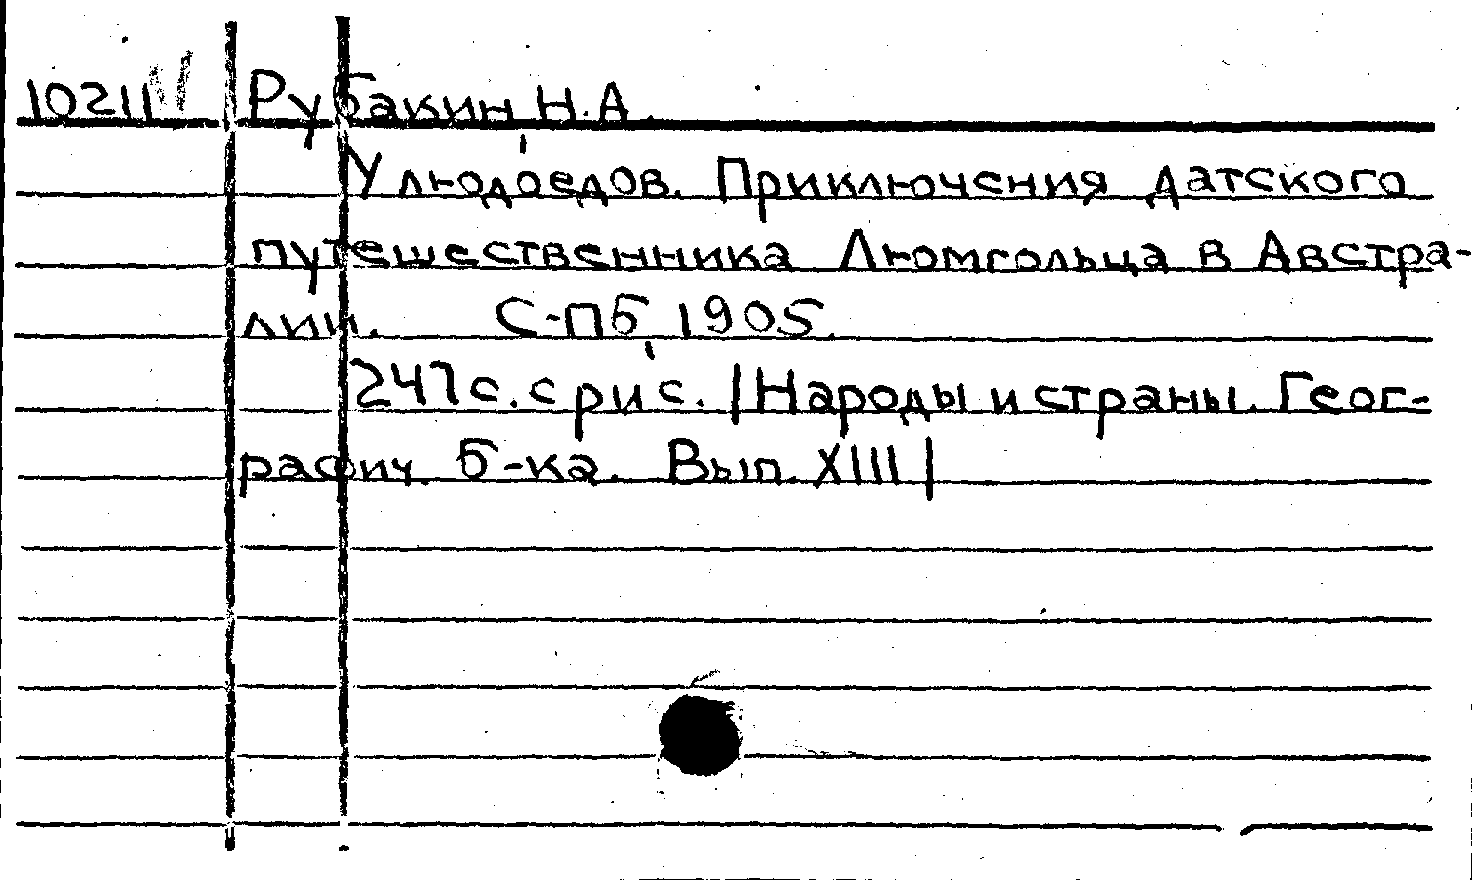 10211 Рубакин, Н.А.
У людоедов. Приключения датского
путешественника Люмгольца в Австра-
лии. С-Пб, 1905.
247 с. с рис. |Народы и страны. Геог-
рафич. б-ка. Вып. XIII|